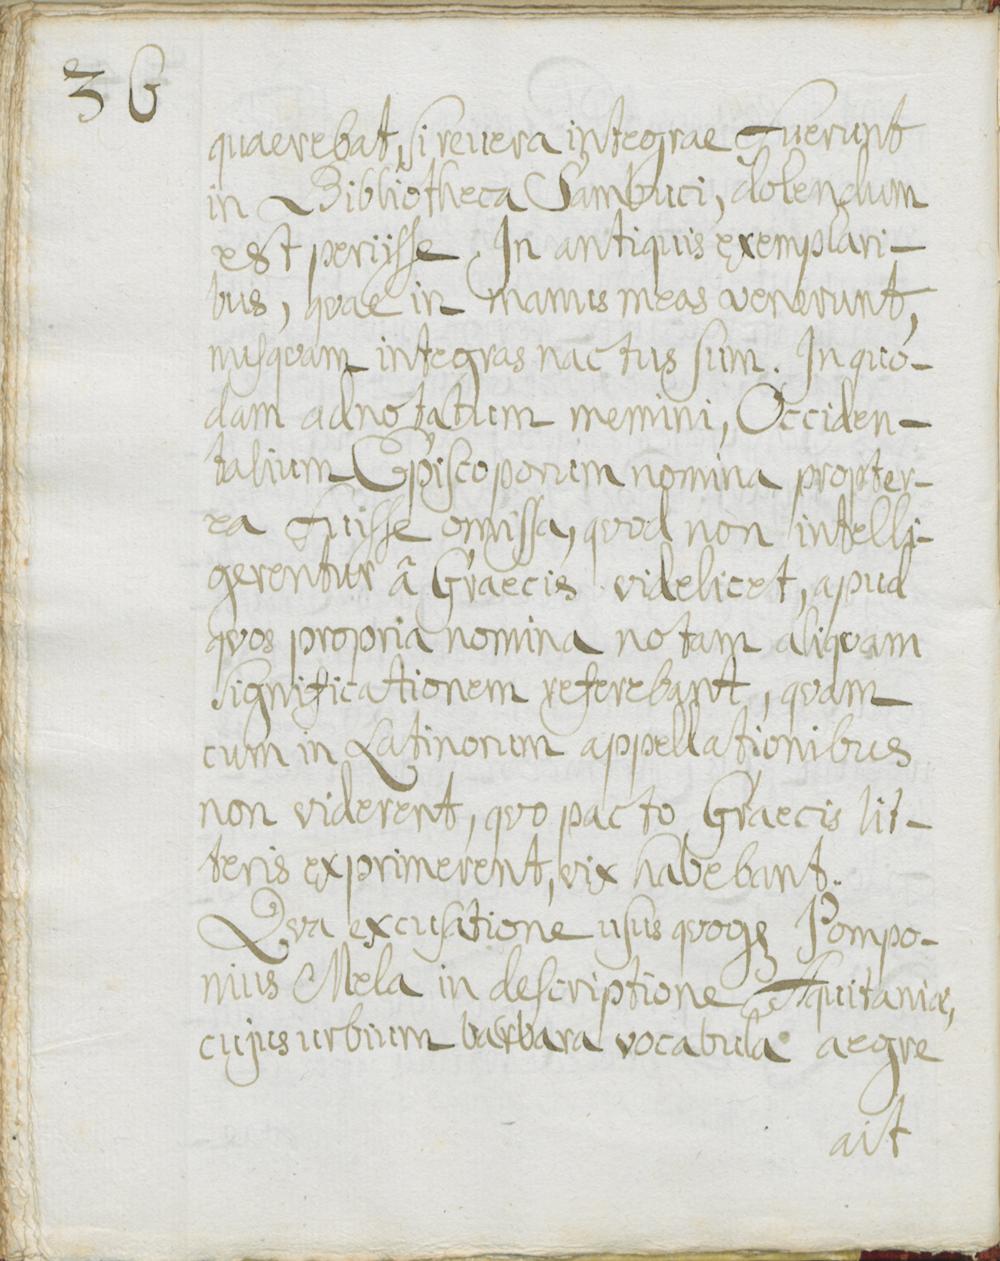 36
quaerebat, si revera integrae fuerunt
in Bibliotheca Sambuci, dolendum
est periisse. In antiquis exemplari-
bus, quae in manus meas venerunt,
nusquam integras nactus sum. In quo-
dam adnotatum memini, Occiden-
talium Episcoporum nomina propter-
ea fuisse omissa, quod non intelli-
gerentur â Graecis videlicet, apud
quos propria nomina notam aliquam
significationem referebant, quam
cum in Latinorum appellationibus
non viderent, quo pacto Graecis lit-
teris exprimerent, vix habebant.
Qva excusatione usus quoqz Pompo-
nius Mela in descriptione Aquitaniae,
cujus urbium barbara vocabula aegre
ait